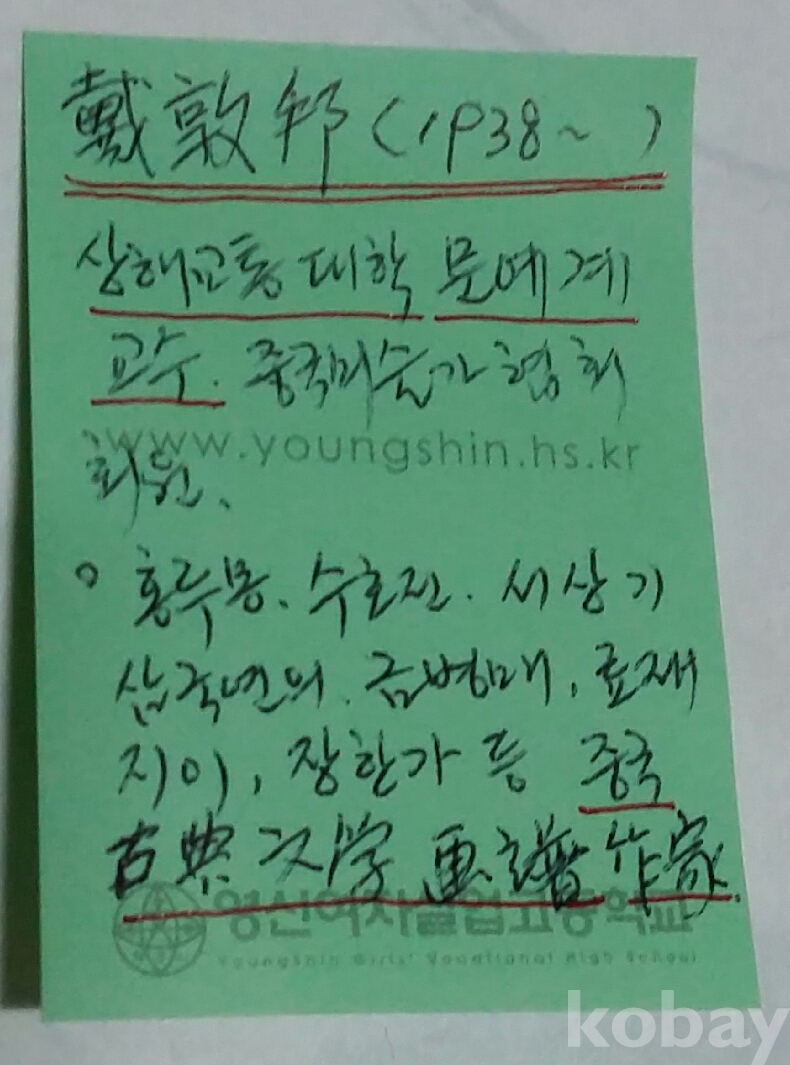 戴敦邦 (1938~ )
상해교통대학 문예계
교수. 중국미술가협회
www.youngshin.hs.kr
회원.
o 홍루몽. 수호전. 서상기
삼국연의. 금병매, 료재
지이, 장한가 등 중국
古典文学 画譜 作家.
영신여자실업고등학교
Youngshin Girls' Vocational High School
kobay